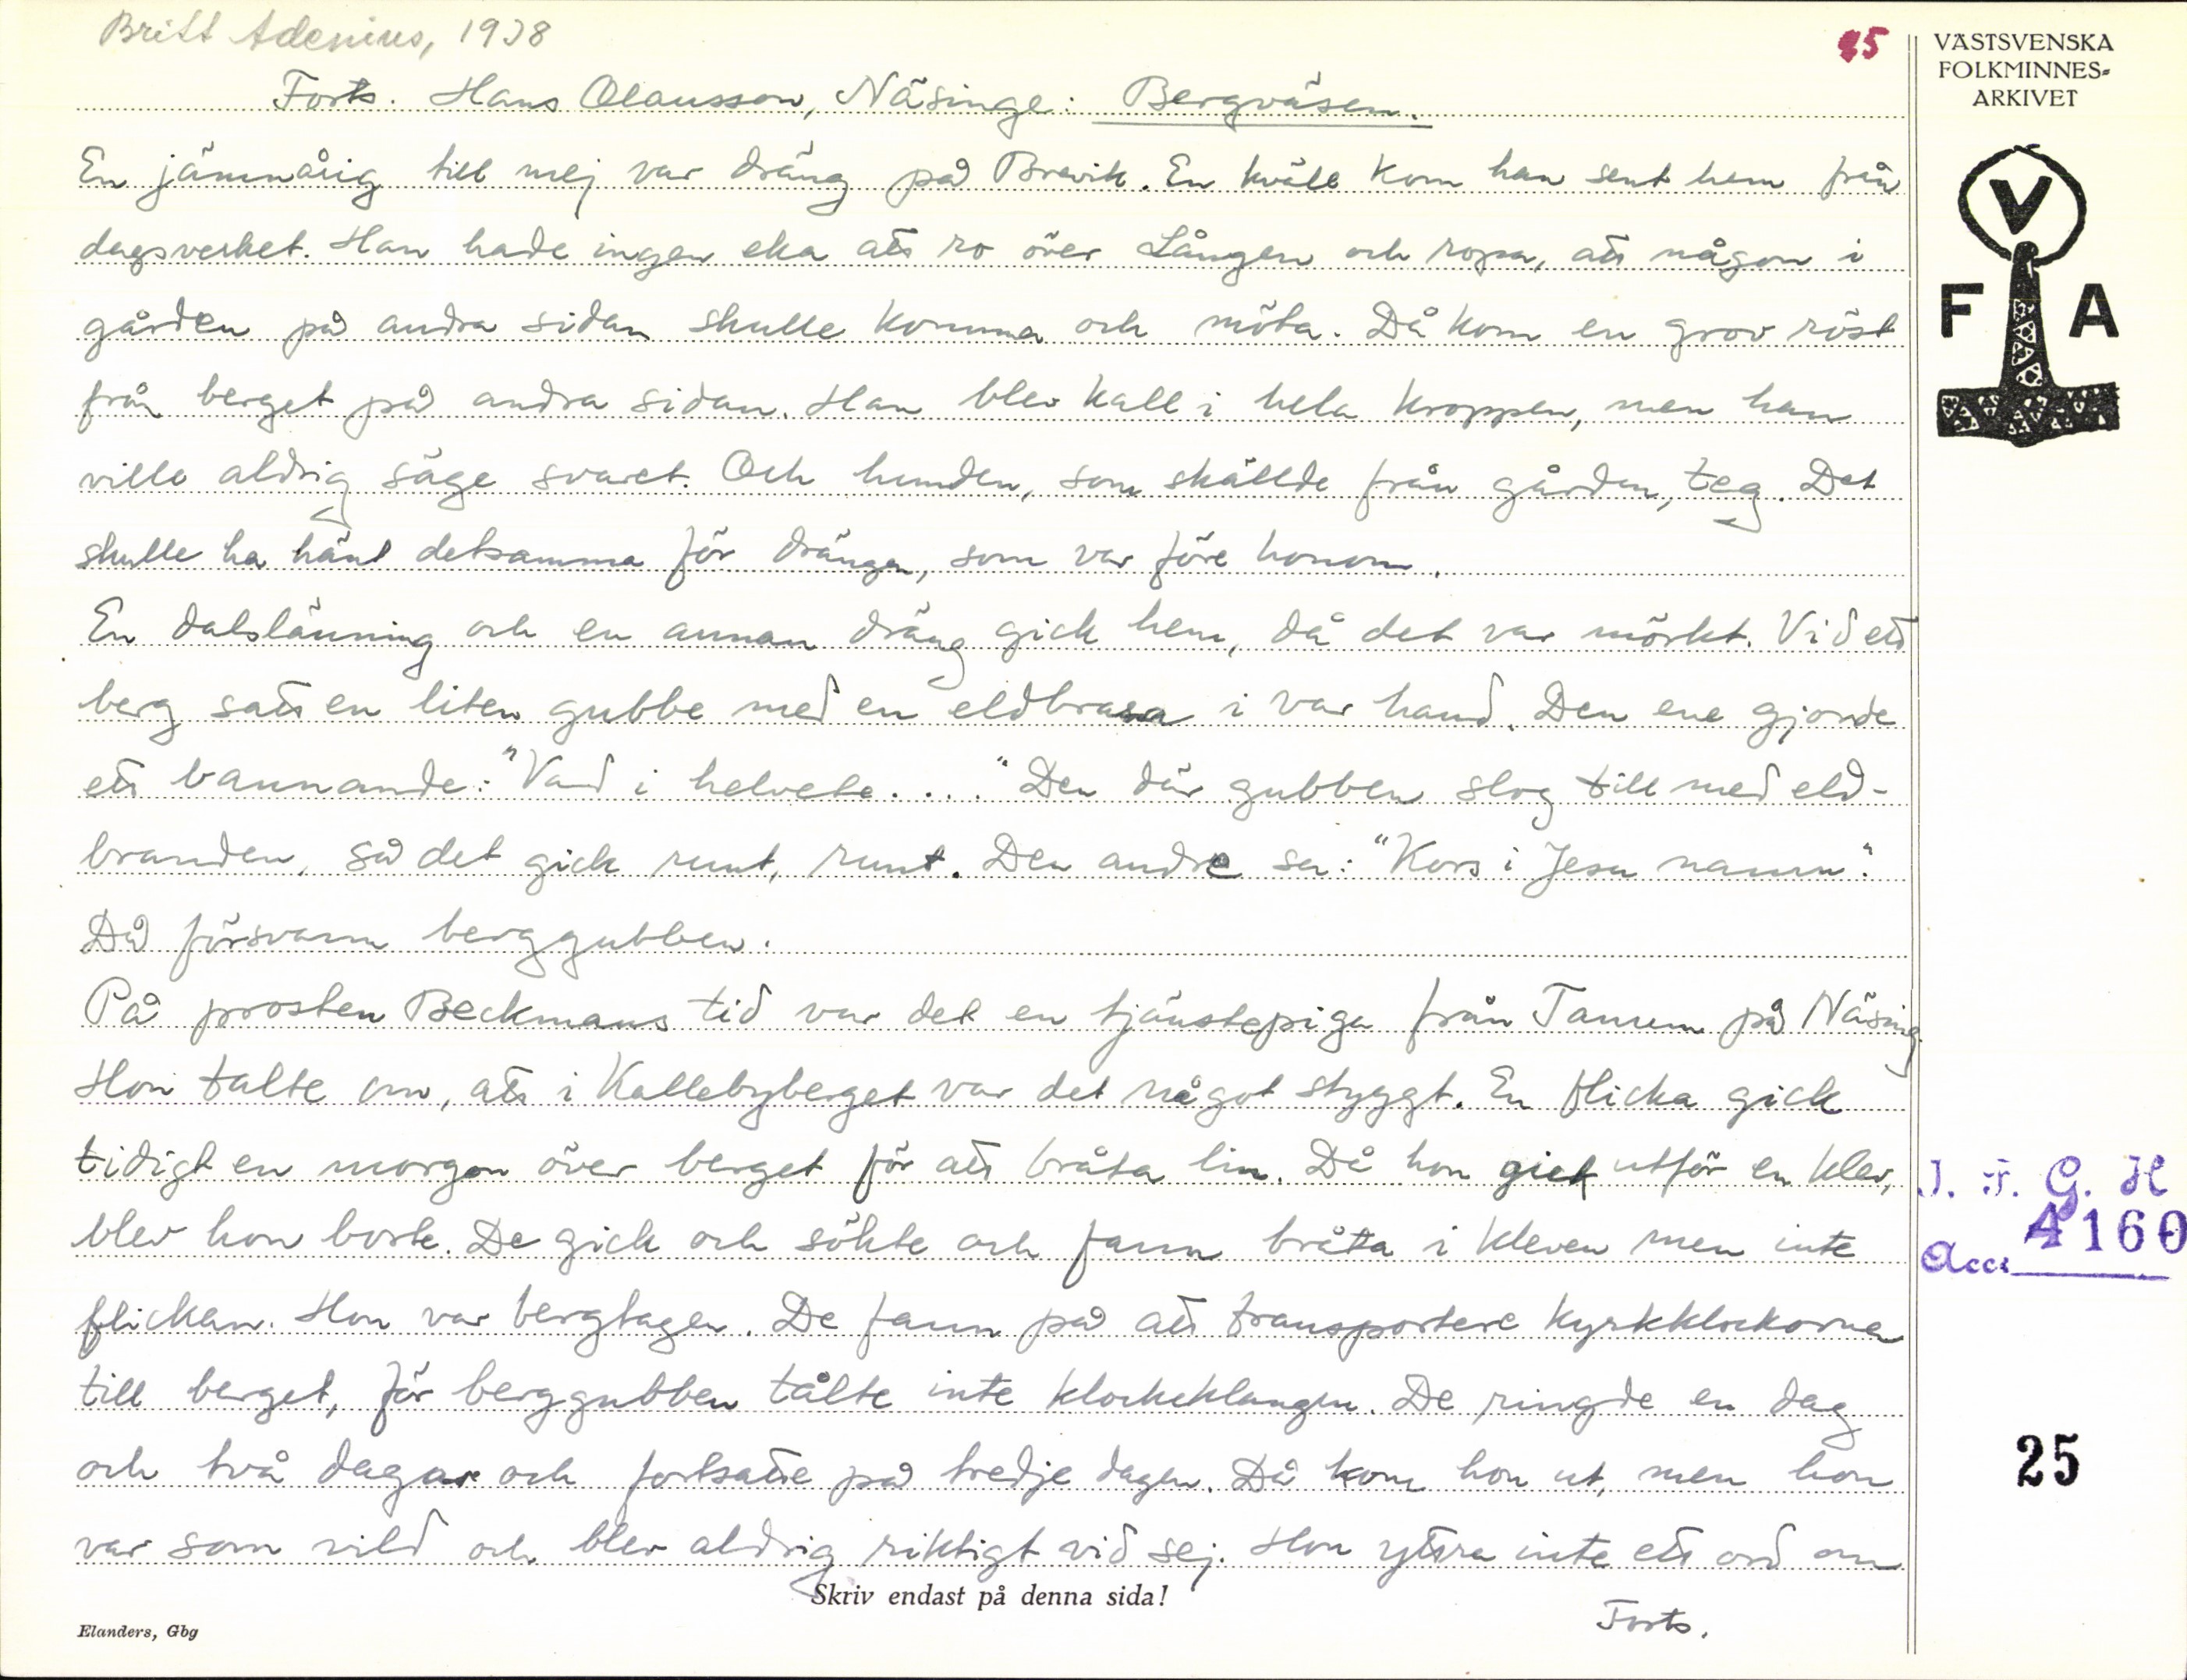 Britt Adenius, 1938
25
VÄSTSVENSKA
FOLKMINNES-
ARKIVET
Forts. Hans Olausson, Näsinge: Bergväsen.
En jämnårig till mej var dräng på Brevik. En kväll kom han sent hem från
dagsverket. Han hade ingen eka att ro över Lången och ropa, att någon i
gården på andra sidan skulle komma och möta. Då kom en grov röst
från berget på andra sidan. Han blev kall i hela kroppen, men han
ville aldrig säga svaret. Och hunden, som skällde från gården, teg. Det
skulle ha hänt detsamma för drängen, som var före honom.
En dalslänning och en annan dräng gick hem, då det var mörkt. Vid ett
berg satt en liten gubbe med en eldbrasa i var hand. Den ene gjorde
ett bannande: "Vad i helvete...." Den där gubben slog till med eld-
branden, så det gick runt, runt. Den andre sa: "Kors i Jesu namn".
Då försvann berggubben.
På prosten Beckmans tid var det en tjänstepiga från Tanum på Näsing.
Hon talte om, att i Kallebyberget var det något styggt. En flicka gick
tidigt en morgon över berget för att bråta lin. Då hon gick utför en klev,
blev hon borte. De gick och sökte och fann bråta i kleven men inte
flickan. Hon var bergtagen. De fann på att transportera kyrkklockorna
till berget, för berggubben tålte inte klockeklangen. De ringde en dag
och två dagar och fortsatte på tredje dagen. Då kom hon ut, men hon
var som vild och blev aldrig riktigt vid sej. Hon yttra inte ett ord om
Forts.
Skriv endast på denna sida!
Elanders, Gbg
V
F A
I. F. G. H
Acc. 4160
25